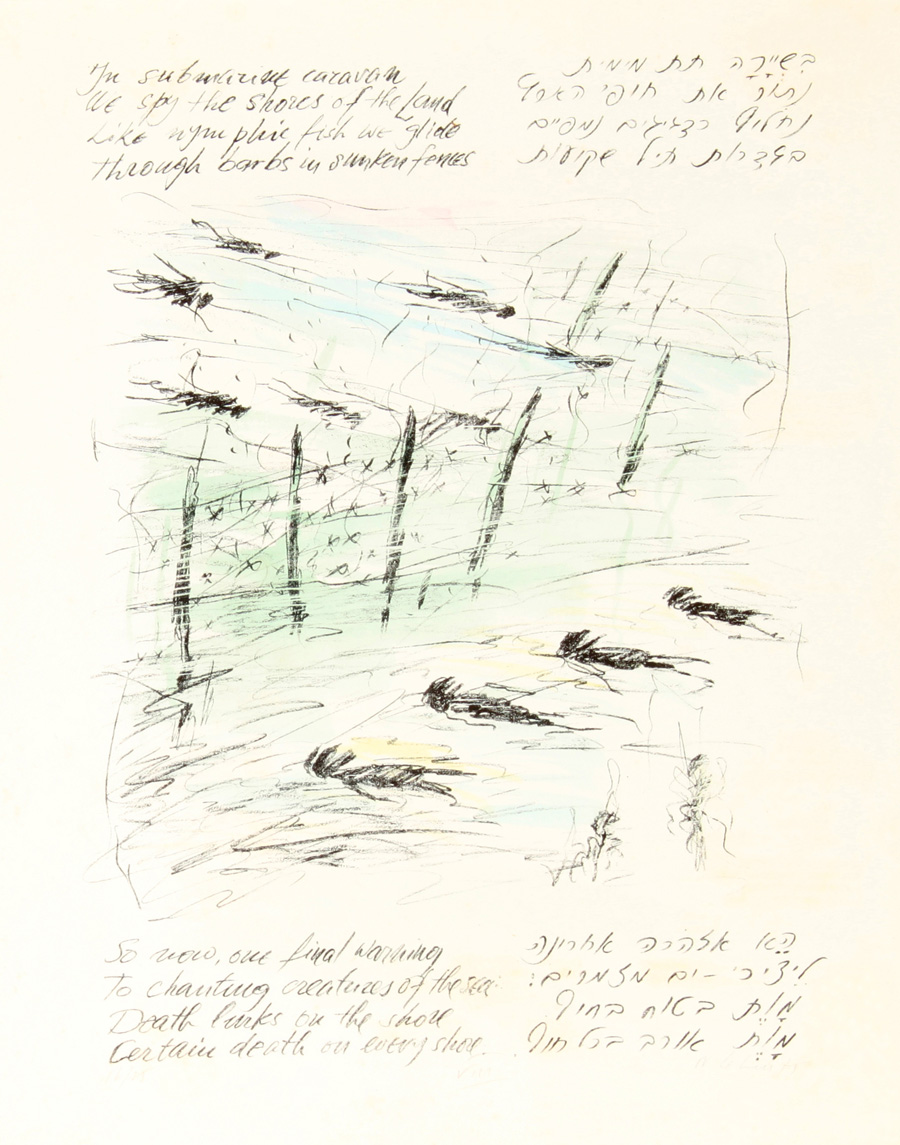 In submarine caravan
We spy the shores of the Land
Like nymphic fish we glide
through barbs in sunken fences
בְּשַׁיָּרָה תת מימית
נָתוּר את חופי הארץ
נחליף כדגיגים נמפיים
בגדרות תיל שקועות
So now, one final warning
To chanting creatures of the sea:
Death lurks on the shore
Certain death on every shore.
הֵא אזהרה אחרונה
לִיצִירֵי-ים מזמרים:
מָוֶת בטוח בחוף
מָוֶת אורב בכל חוף